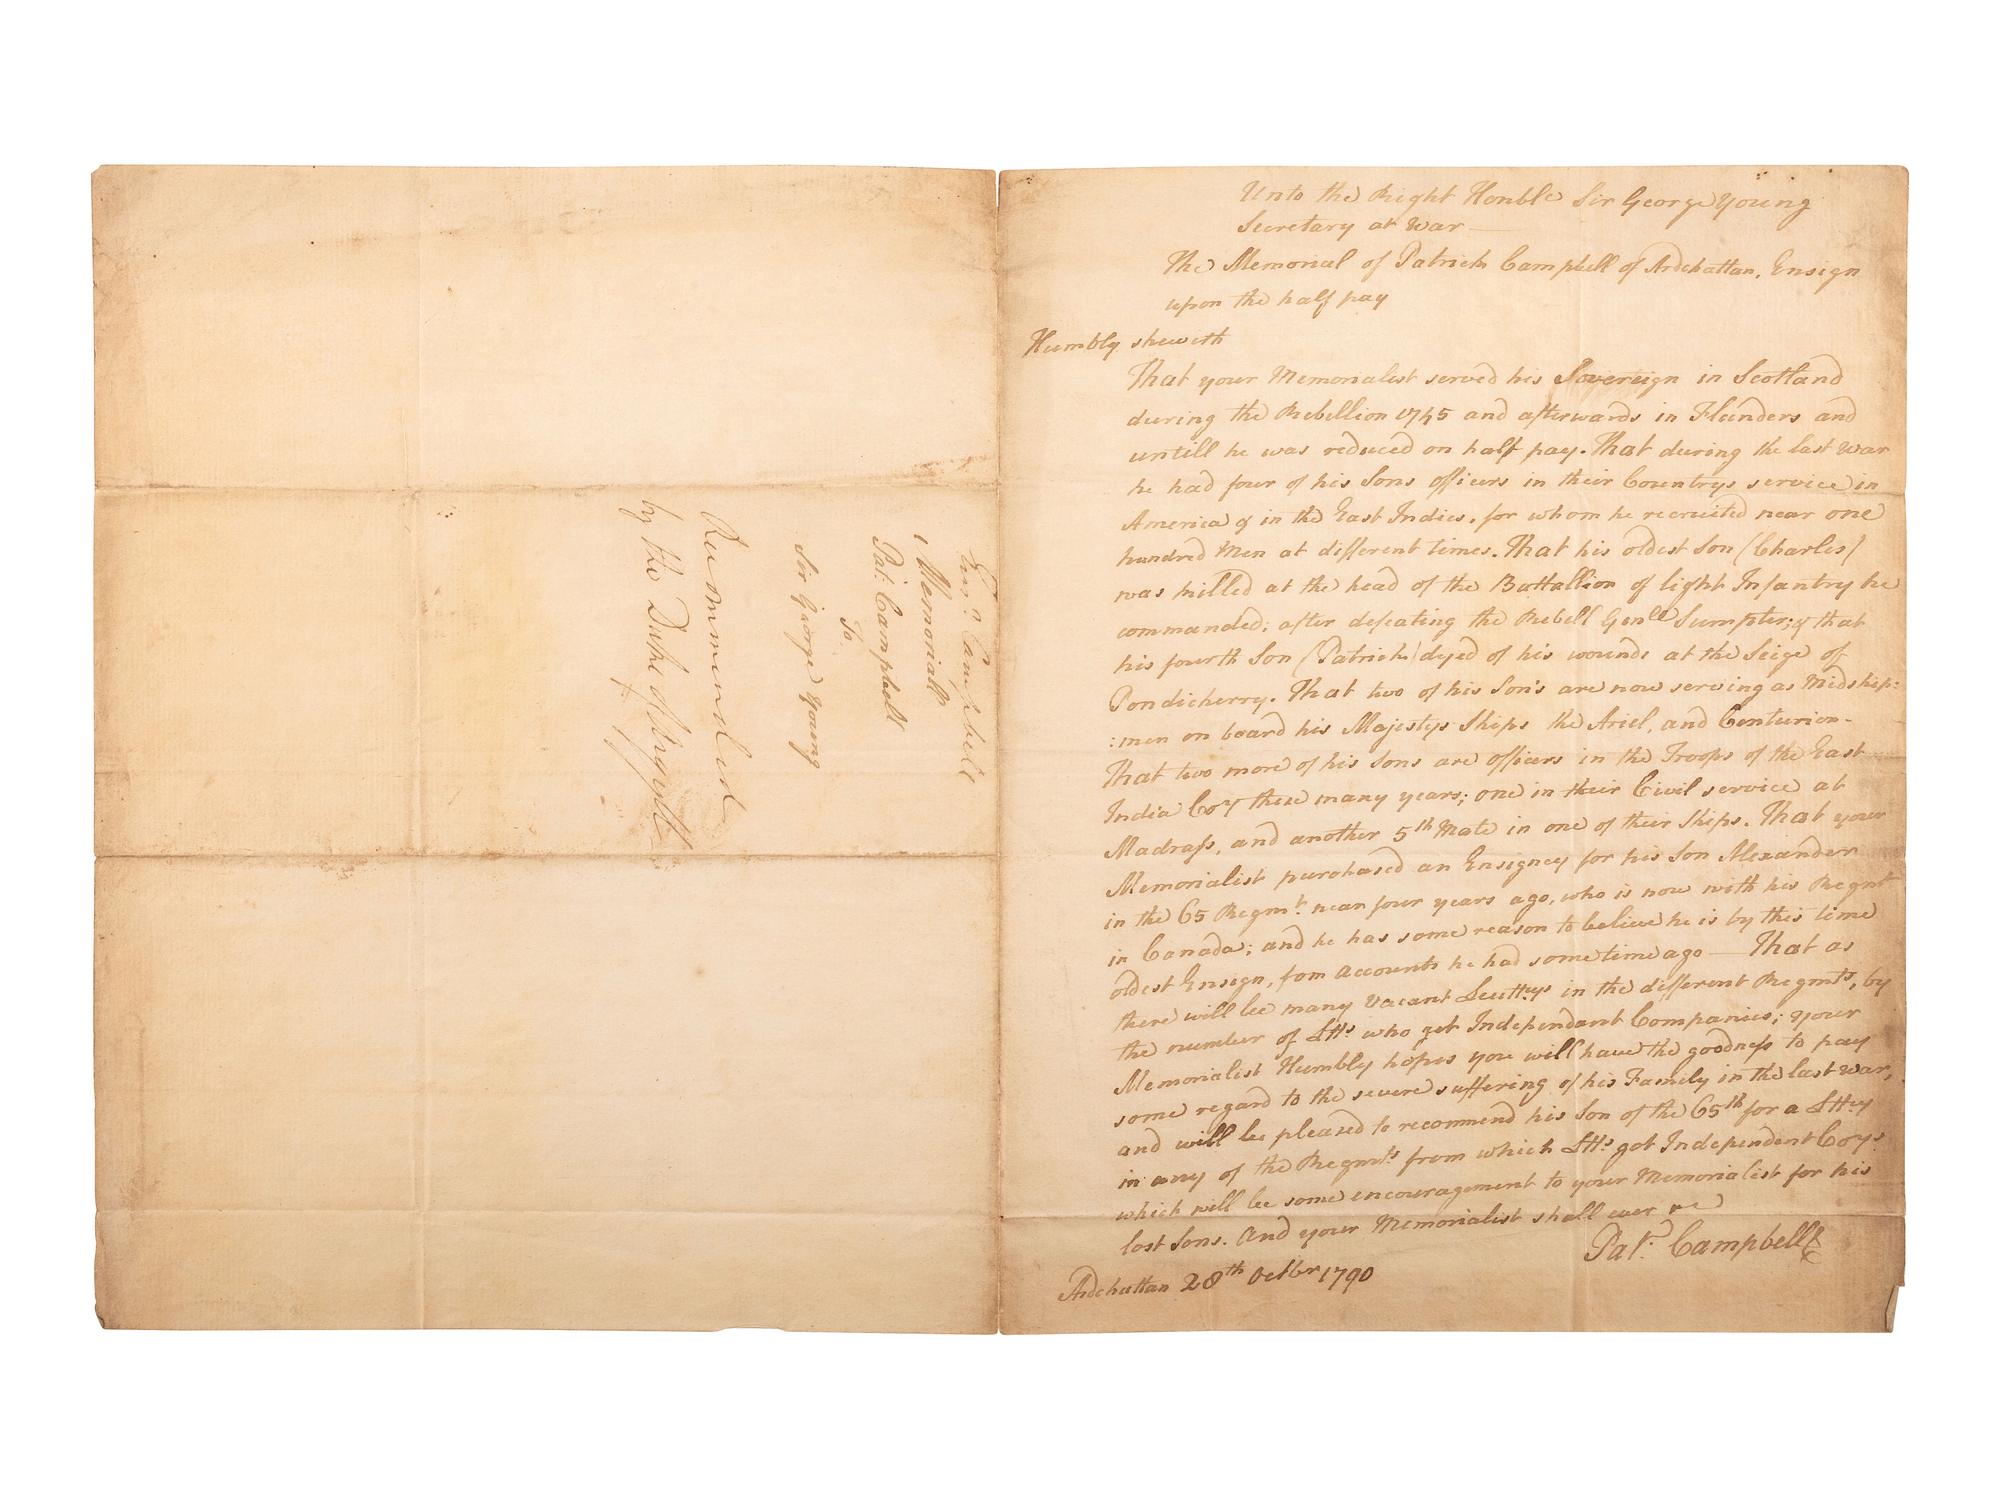 Ens.n Campbell
Memoriall
Pat: Campbell
To
Sir George Young
Recommended
by the Duke of Argyll
Unto the Right Honble Sir George Young
Secretary at War
The Memorial of Patrick Campbell of Ardchattan, Ensign
upon the half pay
Humbly sheweth
That your Memorialist served his Sovereign in Scotland
during the Rebellion 1745 and afterwards in Flanders and
untill he was reduced on half pay. That during the last War
he had four of his Sons officers in their Countrys service in
America & in the East Indies, for whom he recruited near one
hundred Men at different times. That his oldest Son (Charles)
was killed at the head of the Battallion of light Infantry he
commanded; after defeating the Rebell Genll Sumpter; & that
his fourth Son (Patrick) dyed of his wounds at the Seige of
Pondicherry. That two of his Son's are now serving as Midship:
:men on board his Majestys Ships the Ariel, and Centurion-
That two more of his Sons are officers in the Troops of the East
India Coy these many years; one in their Civil service at
Madrass, and another 5th Mate in one of their Ships. That your
Memorialist purchased an Ensigncy for his Son Alexander
in the 65 Regmt. near four years ago, who is now with his Regmt
in Canada; and he has some reason to believe he is by this time
oldest Ensign, fom accounts he had some time ago — That as
there will be many vacant Leuttys in the different Regmts, by
the number of Lts who get Independant Companies; your
Memorialist Humbly hopes you will have the goodness to pay
some regard to the severe suffering of his Family in the last war,
and will be pleased to recommend his Son of the 65th for a Lttcy
in any of the Regmts from which Lts got Independent Coys
which will be some encouragement to your Memorialist for his
lost Sons. And your Memorialist shall ever
Pat. Campbell
Ardchattan 28th Octbr 1790